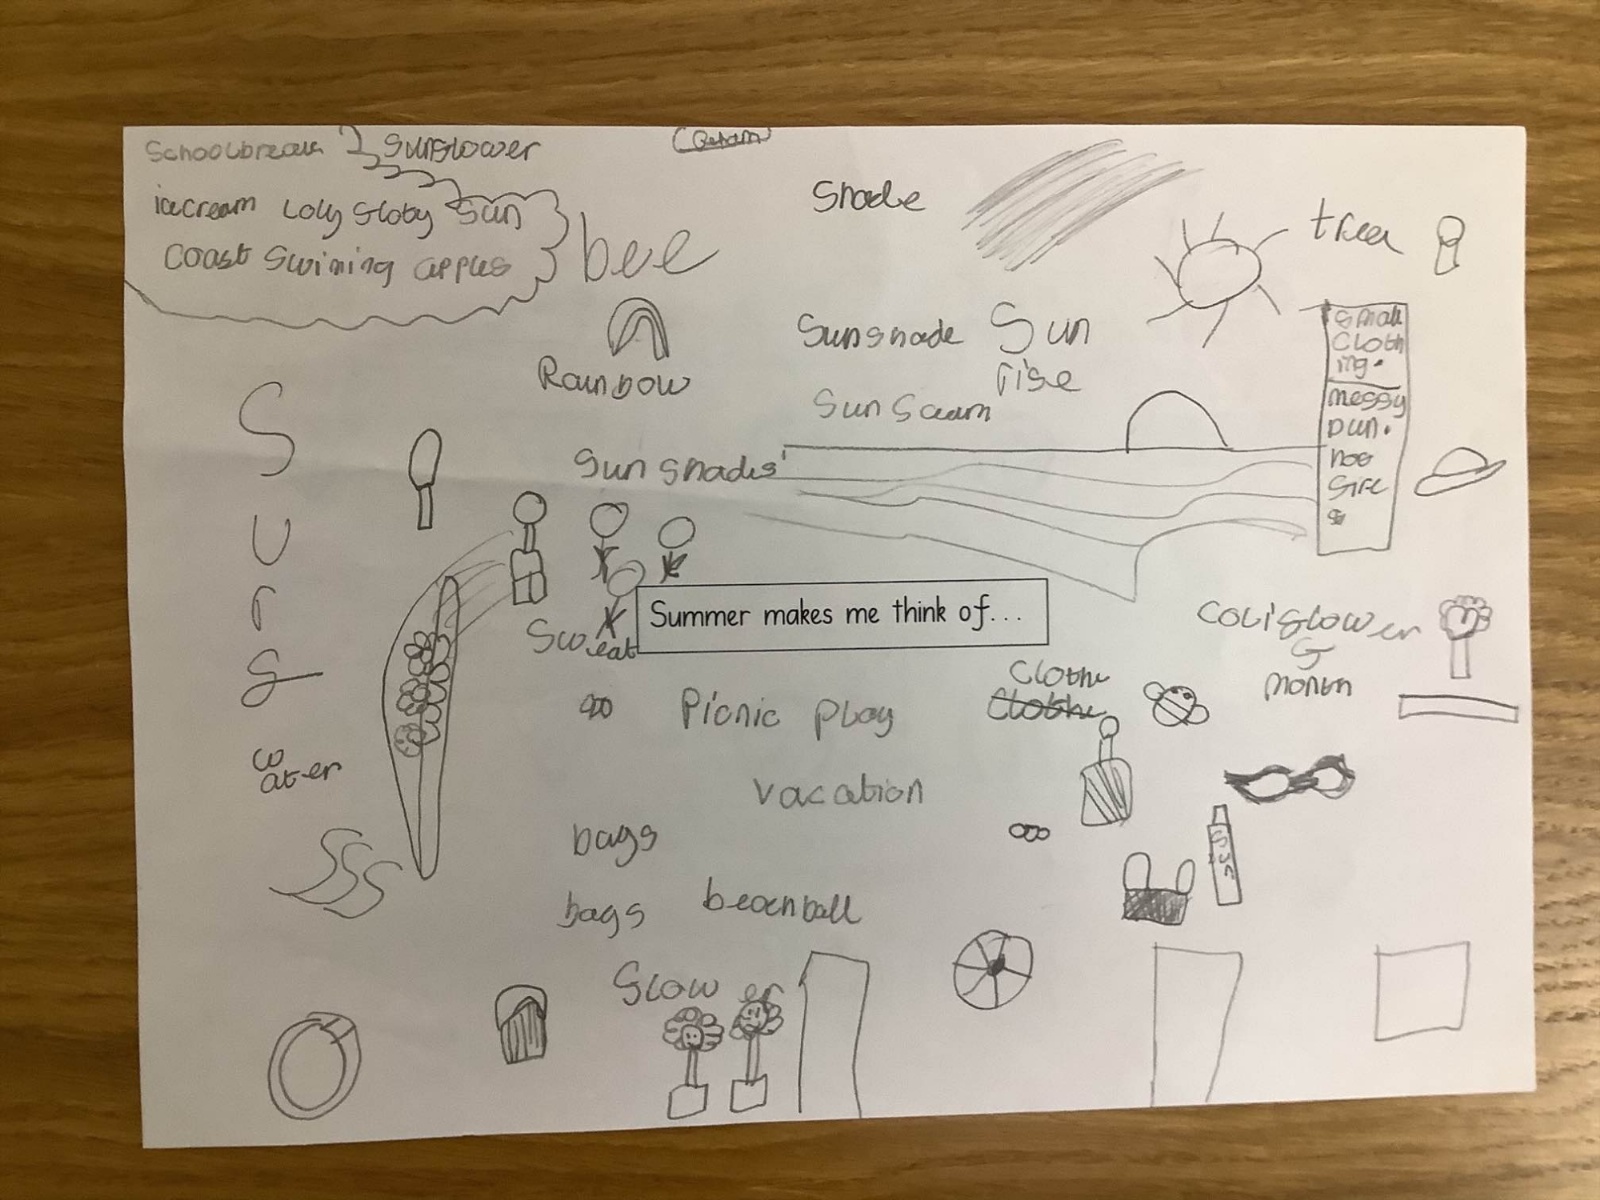 Schoolbreak
Sunslower
icecream Loly Sloby Sun
Coast Swiming apples
bee
Shade
tree
Rainbow
Sunshade
Sun
rise
Sun Scearm
Small
Cloth
ing.
messy
bun.
hoo
Sire
Sun shades
Surs
Sweat
Summer makes me think of...
Colislower
G
month
Clothe
Clothe
Picnic Play
water
vacation
bags
Sun
bags
beachball
Slower